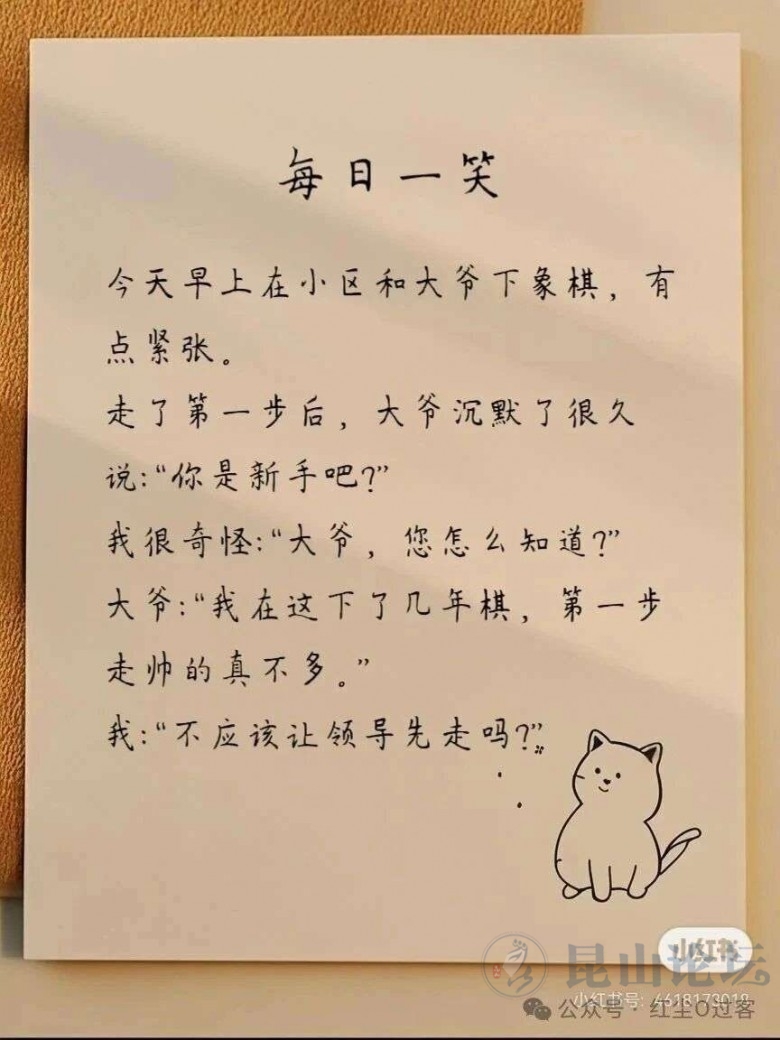 每日一笑
今天早上在小区和大爷下象棋，有
点紧张。
走了第一步后，大爷沉默了很久
说：“你是新手吧？”
我很奇怪：“大爷，您怎么知道？”
大爷：“我在这下了几年棋，第一步
走帅的真不多。”
我：“不应该让领导先走吗？”
小红书
昆山论坛
小红书号：4618173018
公众号·红尘O过客